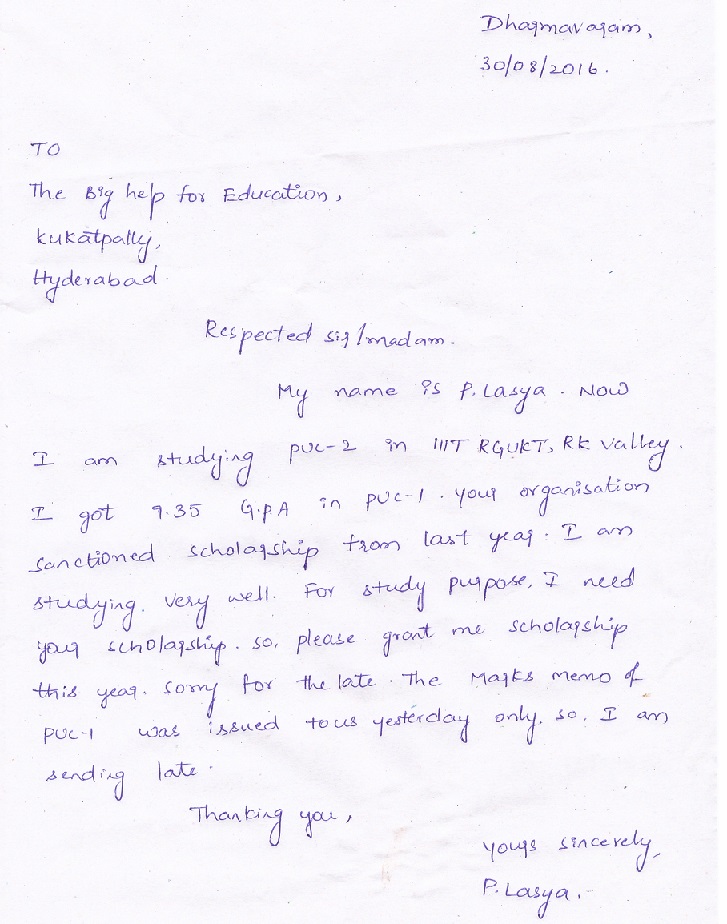 Dharmavaram,
30/08/2016.
TO
The Big help for Education,
kukatpally,
Hyderabad
Respected sir/madam.
My name is P. Lasya. Now
I am studying PUC-2 in IIIT RGUKT, RK valley.
I got 9.35 G.P.A in PUC-1. your organisation
sanctioned scholarship from last year. I am
studying. very well. For study purpose, I need
your scholarship. so, please grant me scholarship
this year. sorry for the late. The Marks memo of
PUC-1 was issued to us yesterday only. so, I am
sending late.
Thanking you,
yours sincerely,
P. Lasya.